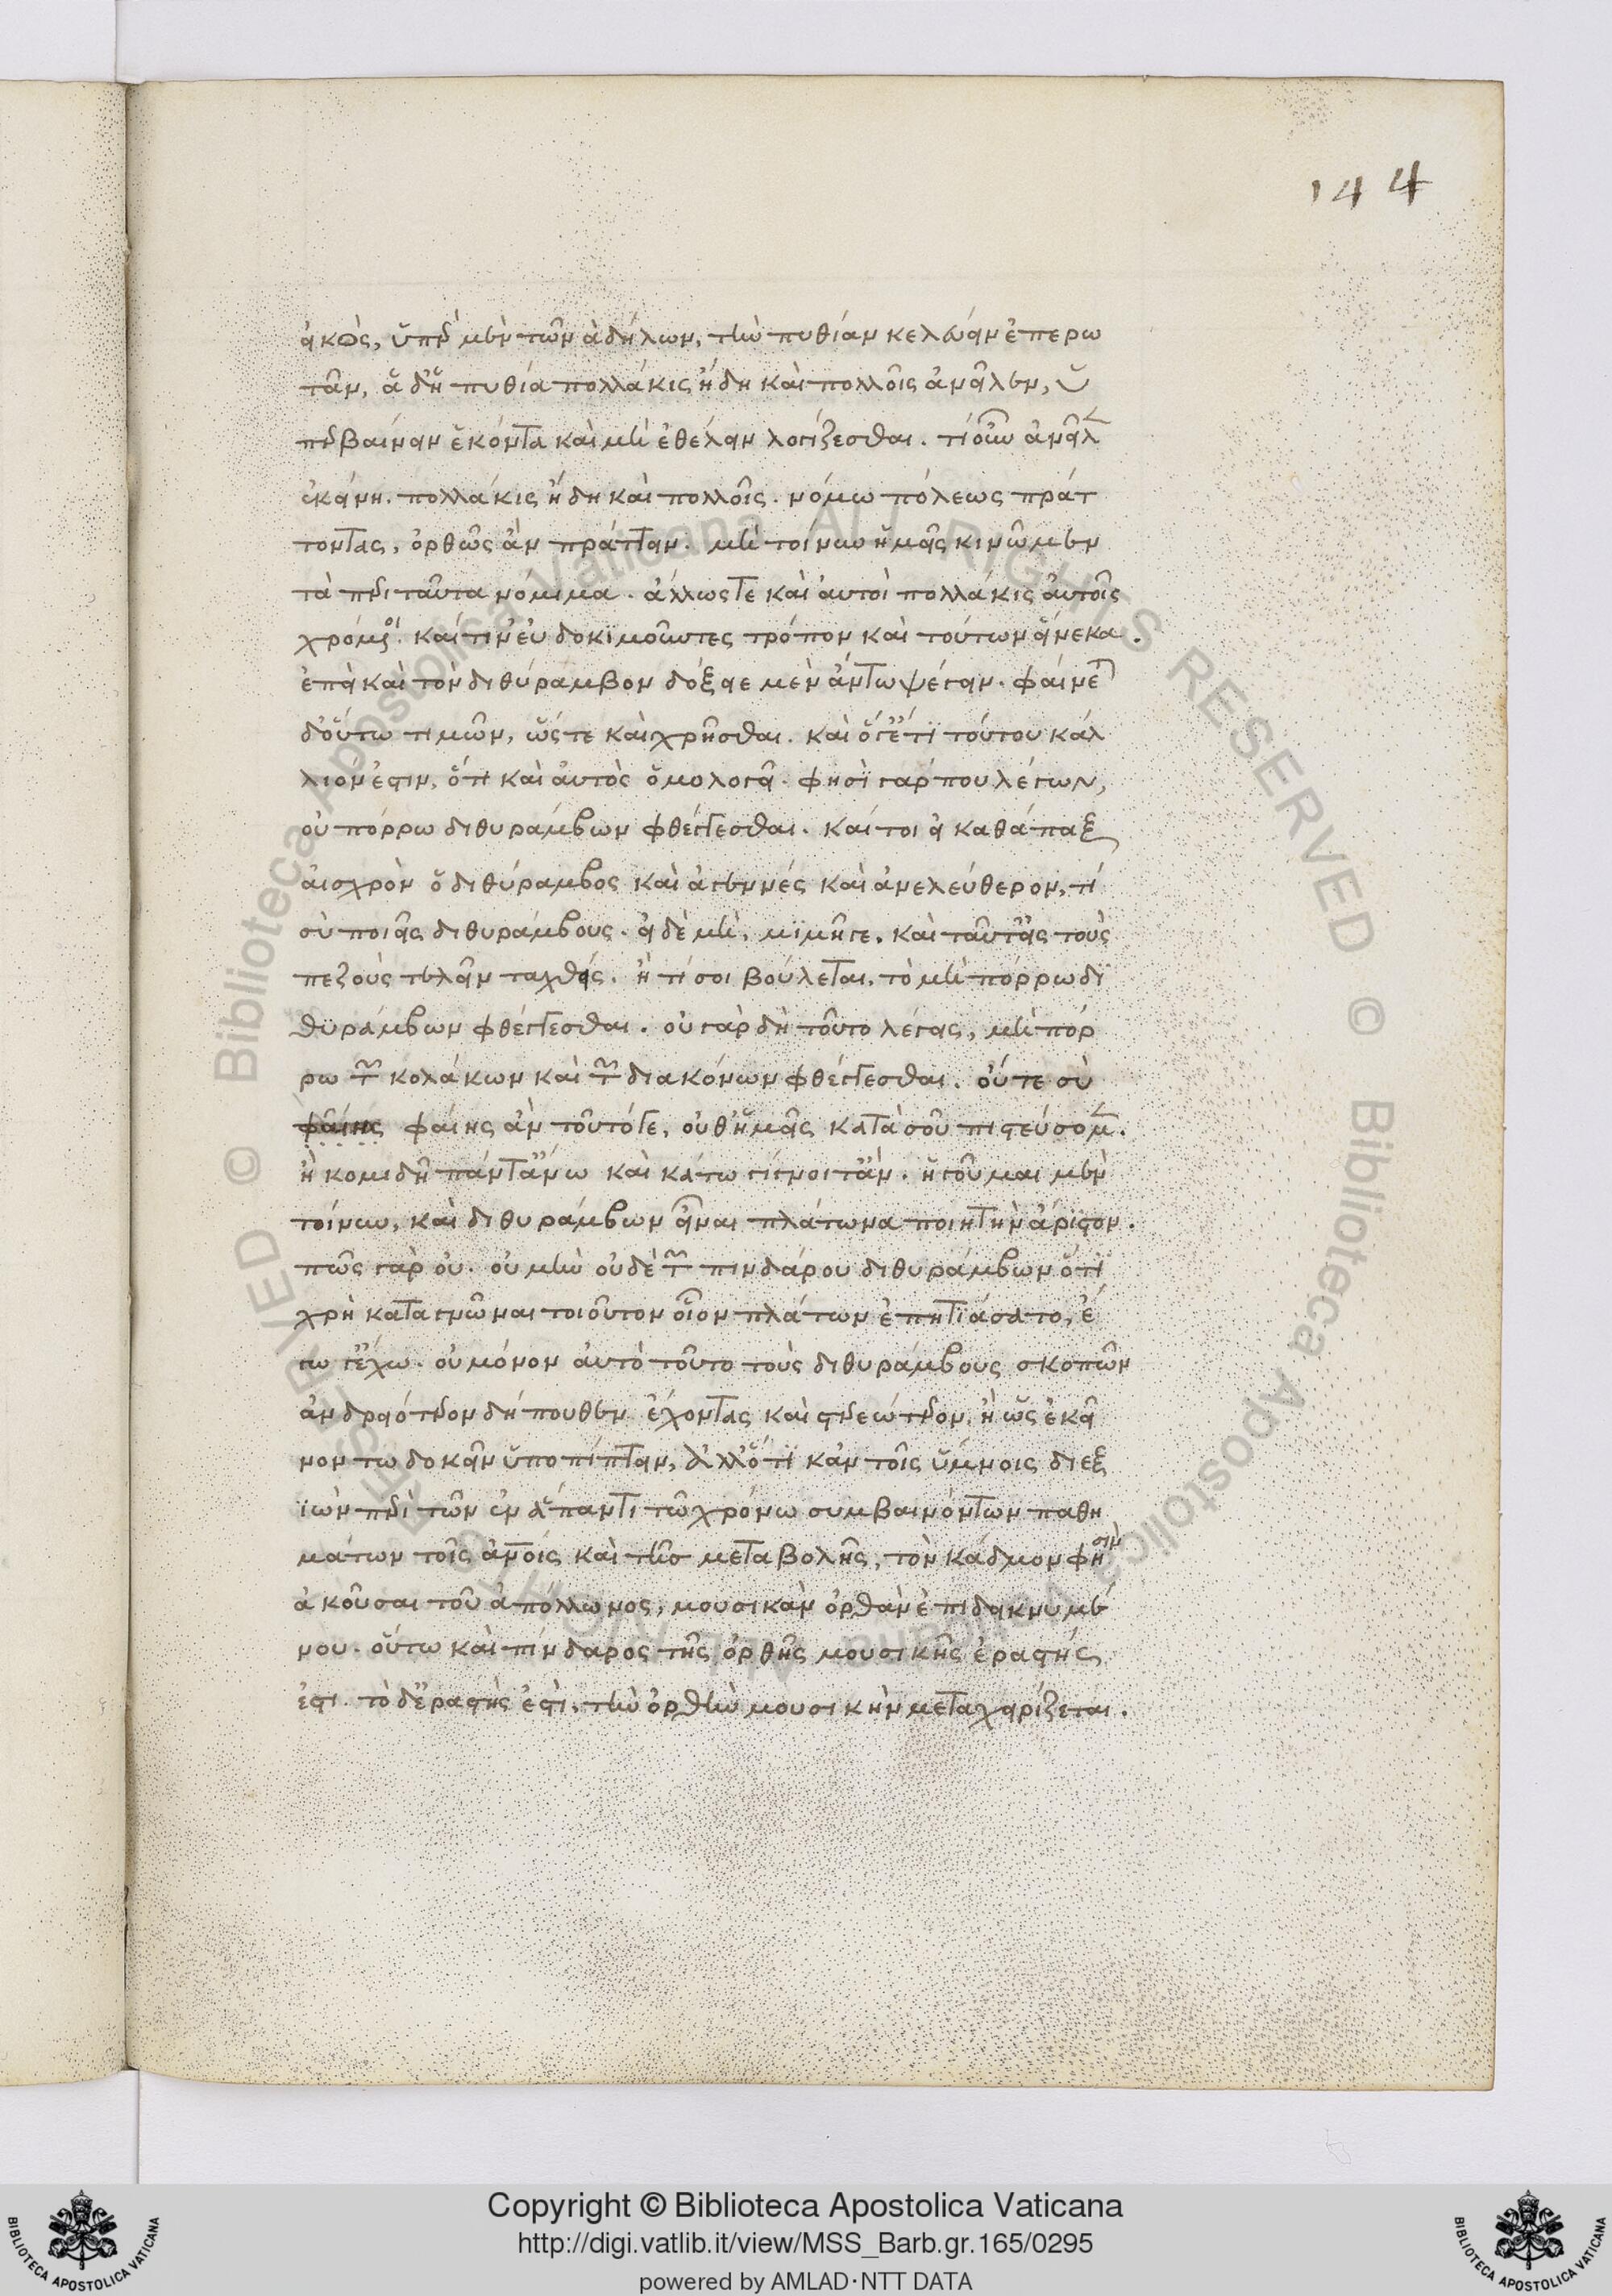 144
εἰκὸς, ὑπὲρ μὲν τῶν ἀδήλων, τὴν πυθίαν κελεύειν ἐπερω
τᾶν, ἃ δ' ἡ πυθία πολλάκις ἤδη καὶ πολλοῖς ἀνεῖλεν, ὑ
περβαίνειν ἑκόντα καὶ μὴ ἐθέλειν λογίζεσθαι. τί οὖν ἀνεῖλ
ἐκείνη. πολλάκις ἤδη καὶ πολλοῖς. νόμω πόλεως πράτ
τοντας, ὀρθῶς ἂν πράττειν. μὴ τοίνυν ἡμεῖς κινῶμεν
τὰ περὶ ταῦτα νόμιμα. ἄλλως τε καὶ αὐτοὶ πολλάκις αὐτοῖς
χρόμενοι. καί τιν' εὐδοκιμοῦντες τρόπον καὶ τούτων εἵνεκα.
ἐπεὶ καὶ τὸν διθύραμβον δόξειε μὲν ἄν τω ψέγειν. φαίνεται
δ' οὕτω τιμῶν, ὥστε καὶ χρῆσθαι. καὶ ὅ γ' ἔτι τούτου κάλ
λιον ἐστιν, ὅτι καὶ αὐτὸς ὁμολογεῖ. φησὶ γάρ που λέγων,
οὐ πόρρω διθυράμβων φθέγγεσθαι. καί τοι εἰ καθάπαξ
αἰσχρὸν ὁ διθύραμβος καὶ ἀγεννές καὶ ἀνελεύθερον, τί
σὺ ποιεῖς διθυράμβους. εἰ δὲ μὴ, μιμῆ γε. καὶ ταῦτ' εἰς τοὺς
πεζοὺς τελεῖν ταχθείς. ἢ τί σοι βούλεται. τὸ μὴ πόρρω δι
θυράμβων φθέγγεσθαι. οὐ γὰρ δὴ τοῦτο λέγεις, μὴ πόρ
ρω τῶν κολάκων καὶ τῶν διακόνων φθέγγεσθαι. οὔτε σὺ
φαίης φαίης ἂν τοῦτό γε, οὐθ' ἡμεῖς κατὰ σοῦ πιστεύσομεν.
ἢ κομιδῆ πάντ' ἄνω καὶ κάτω γίγνοιτ' ἄν. ἡγοῦμαι μὲν
τοίνυν, καὶ διθυράμβων εἶναι πλάτωνα ποιητὴν ἄριστον.
πῶς γὰρ οὐ. οὐ μὴν οὐδὲ τῶν πινδάρου διθυράμβων ὅτι
χρὴ καταγνῶναι τοιοῦτον οἷον πλάτων ἐπητιάσατο, ἔ
γω γ' ἔχω. οὐ μόνον αὐτὸ τοῦτο τοὺς διθυράμβους σκοπῶν
ἀνδρειότερον δήπουθεν ἔχοντας καὶ στερεώτερον, ἢ ὡς ἐκεῖ
νον τω δοκεῖν ὑποπίπτειν, ἀλλ' ὅτι κἀν τοῖς ὕμνοις διεξ
ιὼν περὶ τῶν ἐν ἅπαντι τῶ χρόνω συμβαινόντων παθη
μάτων τοῖς ἀνοις καὶ τῆσ μεταβολῆς, τὸν κάδμον φησὶν
ἀκοῦσαι τοῦ ἀπόλλωνος, μουσικὰν ὀρθὰν ἐπιδεικνυμέ
νου. οὕτω καὶ πίνδαρος τῆς ὀρθῆς μουσικῆς ἐραστής
ἐστι. τὸ δ' ἐραστὴς ἐστὶ, τὴν ὀρθὴν μουσικὴν μεταχειρίζεται.
Copyright © Biblioteca Apostolica Vaticana
http://digi.vatlib.it/view/MSS_Barb.gr.165/0295
powered by AMLAD·NTT DATA